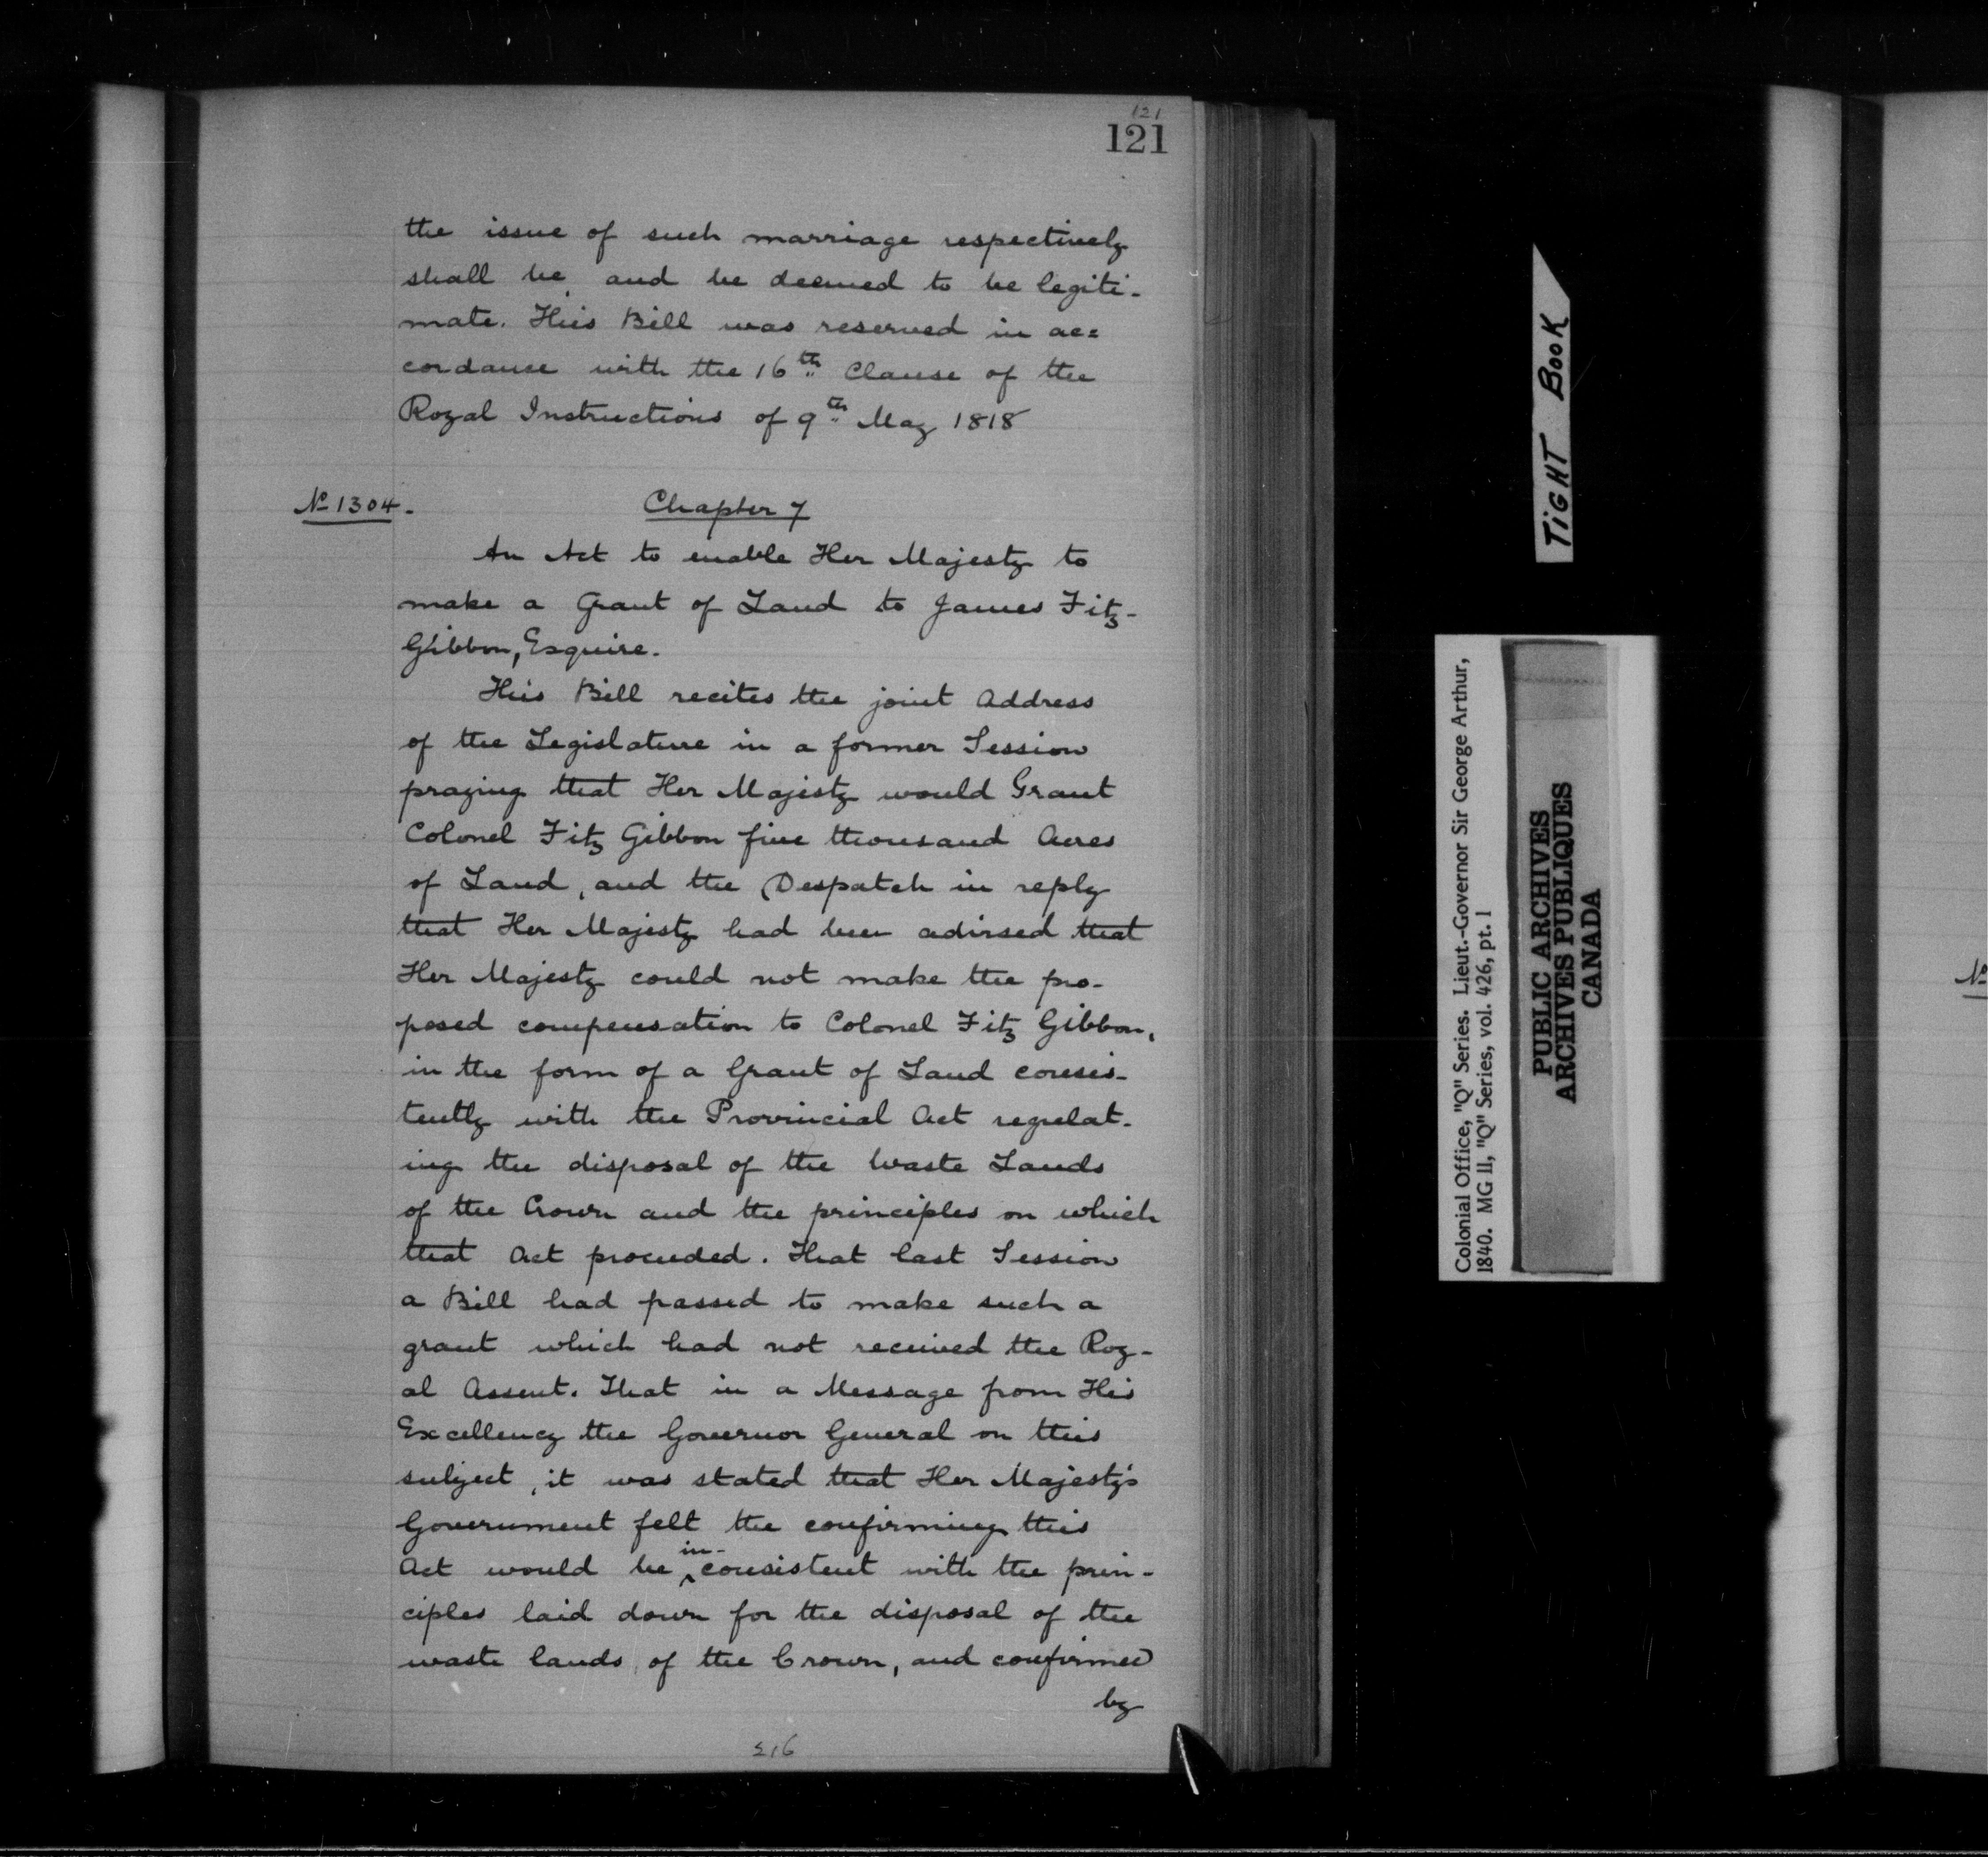 121
121
the issue of such marriage respectively
shall be, and be deemed to be legiti-
mate. This Bill was reserved in ac=
cordance with the 16th Clause of the
Royal Instructions of 9th May 1818
No 1304.
Chapter 7
An Act to enable Her Majesty to
make a Grant of Land to James Fitz-
Gibbon, Esquire.
This Bill recites the joint Address
of the Legislature in a former Session
praying that Her Majesty would Grant
Colonel Fitz Gibbon five thousand Acres
of Land, and the Despatch in reply
that Her Majesty had been advised that
Her Majesty could not make the pro-
posed compensation to Colonel Fitz Gibbon,
in the form of a Grant of Land consis-
tently with the Provincial Act regulat-
ing the disposal of the Waste Lands
of the Crown and the principles on which
that Act proceeded. That last Session
a Bill had passed to make such a
grant which had not received the Roy-
al Assent. That in a Message from His
Excellency the Governor General on this
subject, it was stated that Her Majesty's
Government felt the confirming this
Act would be in-consistent with the prin-
ciples laid down for the disposal of the
waste lands, of the Crown, and confirmed
by
216
TIGHT BOOK
Colonial Office, "Q" Series. Lieut.-Governor Sir George Arthur,
1840. MG 11, "Q" Series, vol. 426, pt. 1
PUBLIC ARCHIVES
ARCHIVES PUBLIQUES
CANADA
No